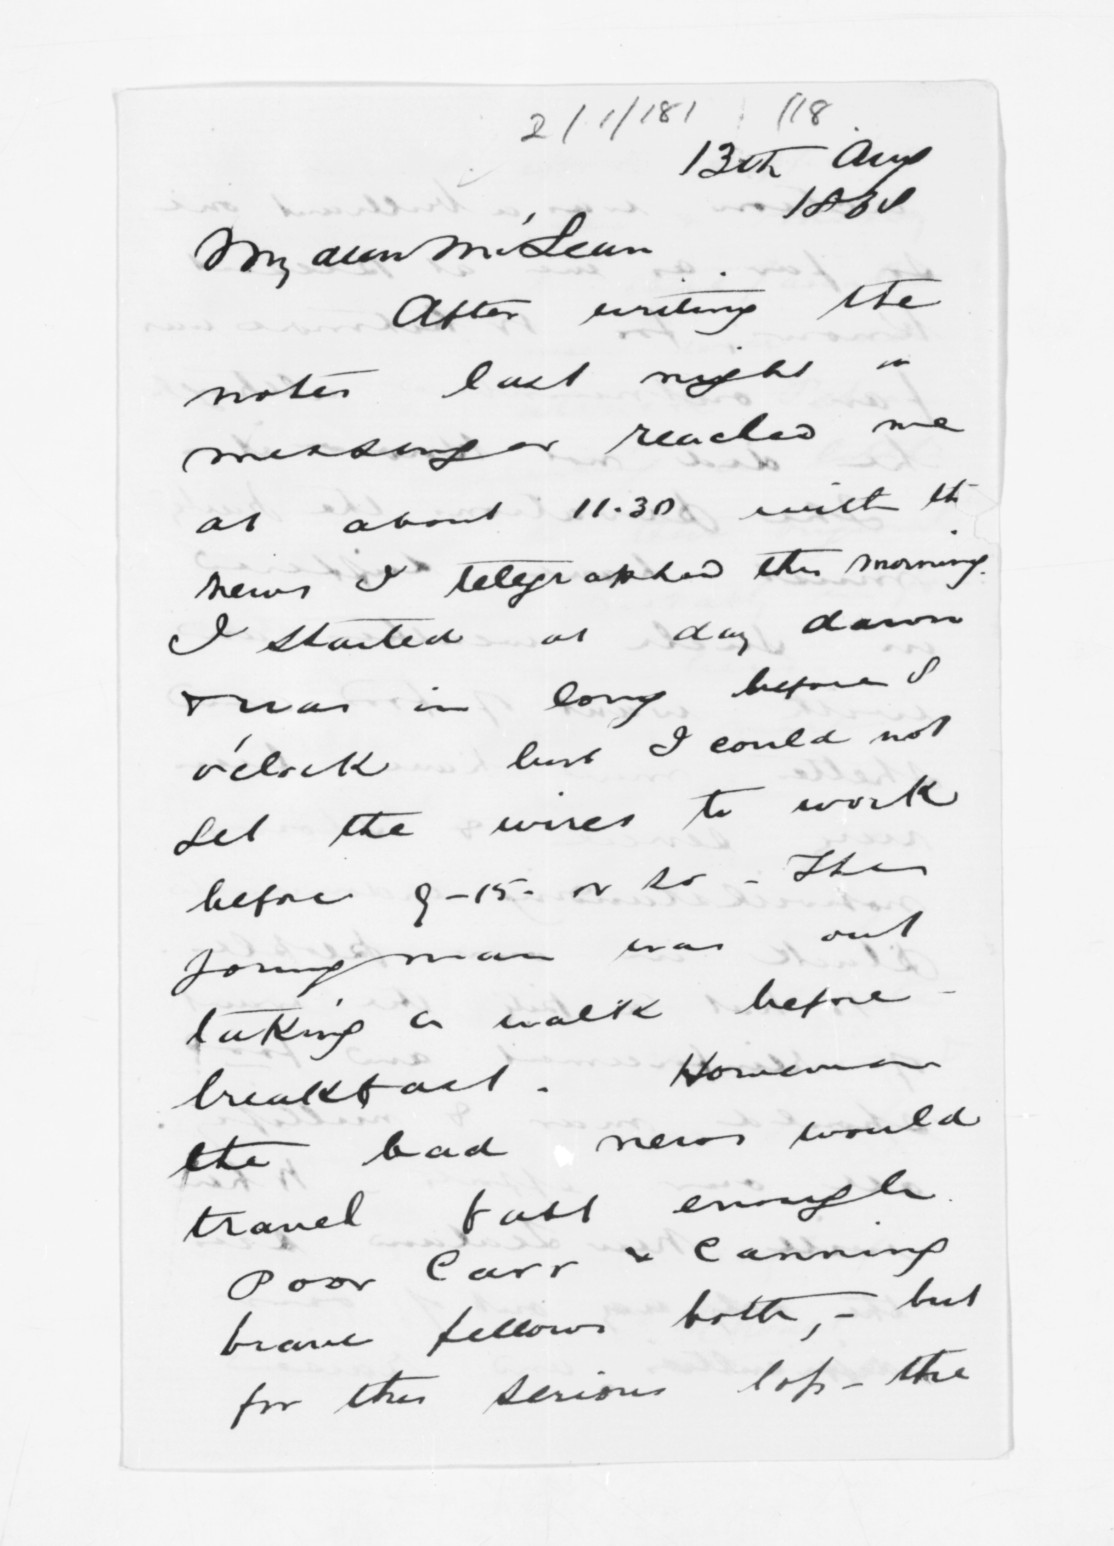 2/1/181 118
13th Aug
1868
My dear McLean
After writing the
notes last night a
messenger reached me
at about 11.30 with the
news I telegraphed this morning.
I started at day dawn
& was in long before 8
o'clock but I could not
set the wires to work
before 9-15- or so - The
young man was out
taking a walk before -
breakfast. However
the bad news would
travel fast enough.
Poor Carr & Canning
brave fellows both, - but
for this serious loss - the